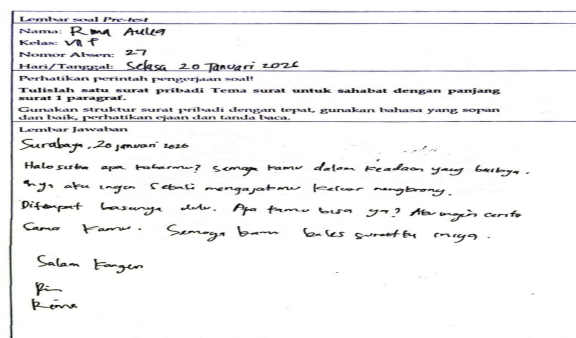 Lembar soal Pre-test
Nama: Rma Aulia
Kelas: VII F
Nomor Absen: 27
Hari/Tanggal: Selasa 20 Januari 2026
Perhatikan perintah pengerjaan soal!
Tulislah satu surat pribadi Tema surat untuk sahabat dengan panjang
surat 1 paragraf.
Gunakan struktur surat pribadi dengan tepat, gunakan bahasa yang sopan
dan baik, perhatikan ejaan dan tanda baca.
Lembar Jawaban
Surabaya, 20 januari 2026
Halo apa kabarmu? semoga kamu dalam keadaan yang
aku ingin sekali mengajakmu keluar
Ditempat dulu. Apa kamu bisa ya? Aku ingin cerita
sama kamu. Semoga kamu bales
Salam kangen